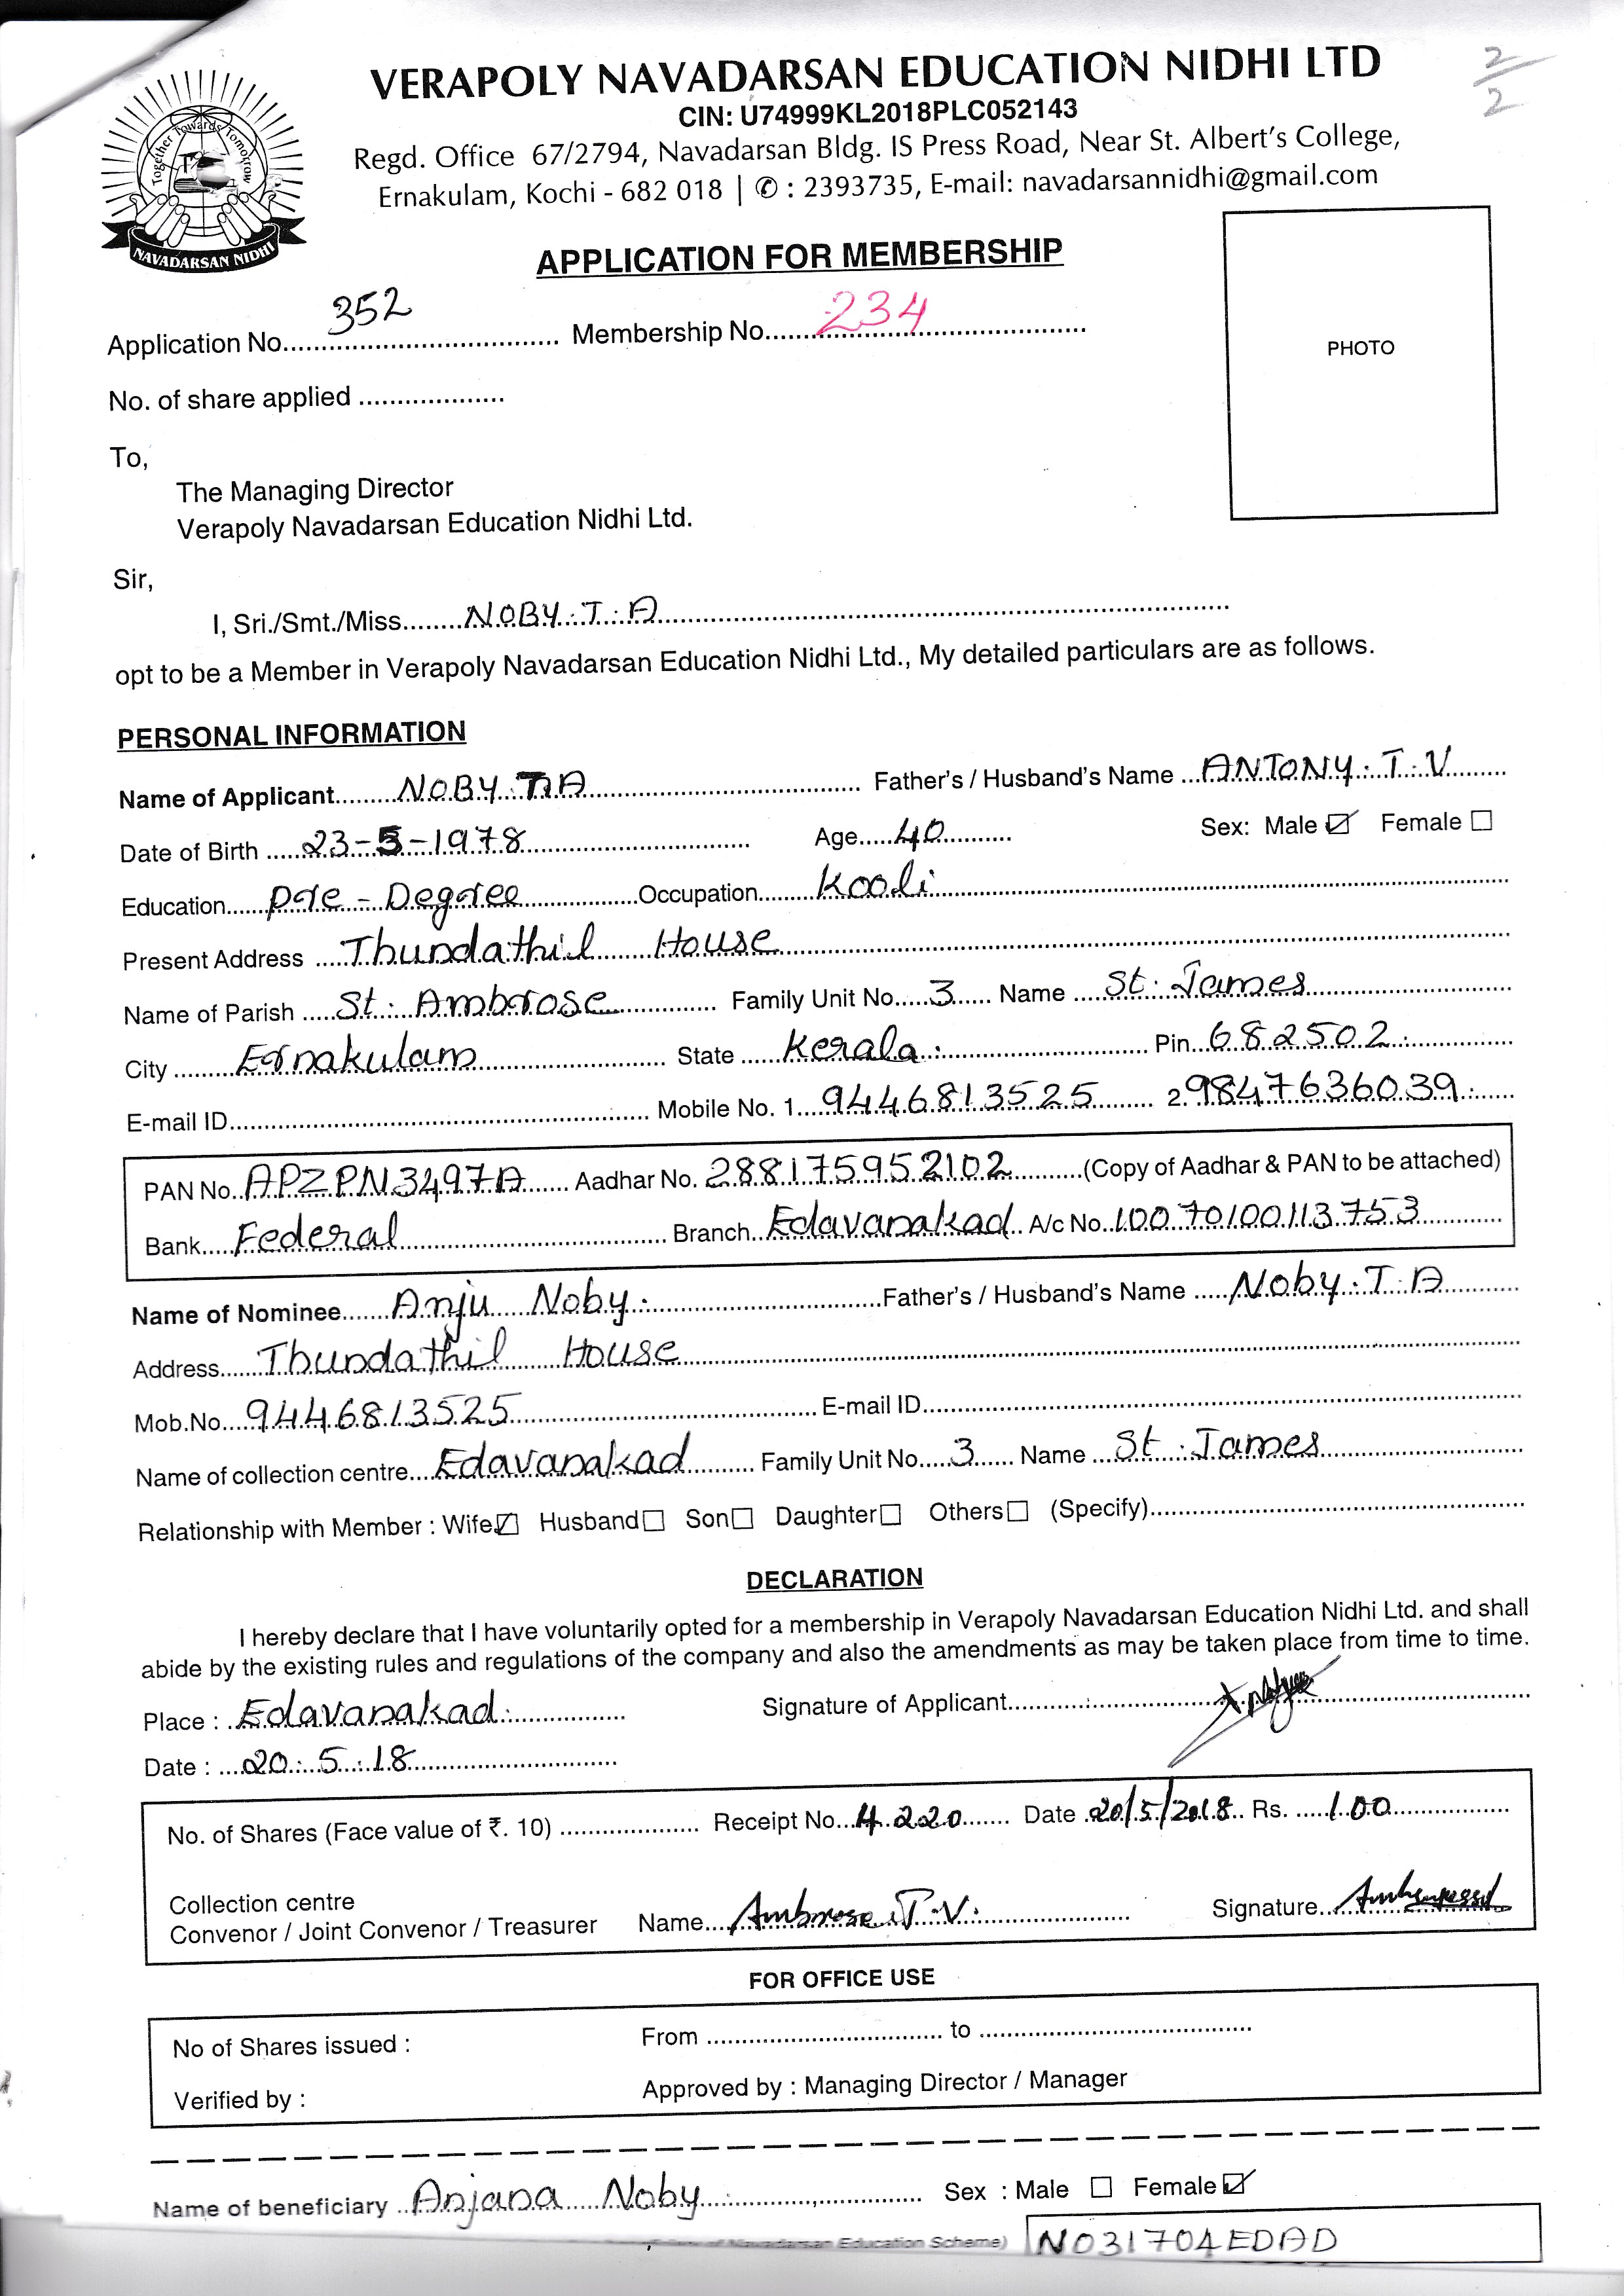 VERAPOLY NAVADARSAN EDUCATION NIDHI LTD
2/2
CIN: U74999KL2018PLC052143
Regd. Office 67/2794, Navadarsan Bldg. IS Press Road, Near St. Albert's College,
Ernakulam, Kochi - 682 018 | ✆ : 2393735, E-mail: navadarsannidhi@gmail.com
Together Towards Tomorrow
NAVADARSAN NIDHI
APPLICATION FOR MEMBERSHIP
Application No. 352 Membership No. 234
PHOTO
No. of share applied ...................
To,
The Managing Director
Verapoly Navadarsan Education Nidhi Ltd.
Sir,
I, Sri./Smt./Miss NOBY.T.A
opt to be a Member in Verapoly Navadarsan Education Nidhi Ltd., My detailed particulars are as follows.
PERSONAL INFORMATION
Name of Applicant NOBY T.A Father's / Husband's Name ANTONY.T.V
Date of Birth 23-5-1978 Age 40 Sex: Male ☑ Female ☐
Education Pre-Degree Occupation Kooli
Present Address Thundathil House
Name of Parish St. Ambrose Family Unit No. 3 Name St. James
City Ernakulam State Kerala. Pin 682502
E-mail ID Mobile No. 1. 9446813525 2. 9847636039
PAN No. APZPN3497A Aadhar No. 288175952102 (Copy of Aadhar & PAN to be attached)
Bank Federal Branch Edavanakad A/c No. 10070100113753
Name of Nominee Anju Noby. Father's / Husband's Name Noby.T.A
Address Thundathil House
Mob.No. 9446813525 E-mail ID
Name of collection centre Edavanakad Family Unit No. 3 Name St. James
Relationship with Member : Wife ☑ Husband ☐ Son ☐ Daughter ☐ Others ☐ (Specify)
DECLARATION
I hereby declare that I have voluntarily opted for a membership in Verapoly Navadarsan Education Nidhi Ltd. and shall
abide by the existing rules and regulations of the company and also the amendments as may be taken place from time to time.
Place : Edavanakad. Signature of Applicant
Date : 20.5.18
No. of Shares (Face value of ₹. 10) Receipt No. 4220 Date 20/5/2018 Rs. 100
Collection centre
Convenor / Joint Convenor / Treasurer Name Ambrose T.V. Signature
FOR OFFICE USE
No of Shares issued : From to
Verified by : Approved by : Managing Director / Manager
Name of beneficiary Anjana Noby Sex : Male ☐ Female ☑
Navadarsan Education Scheme) N031704EDAD